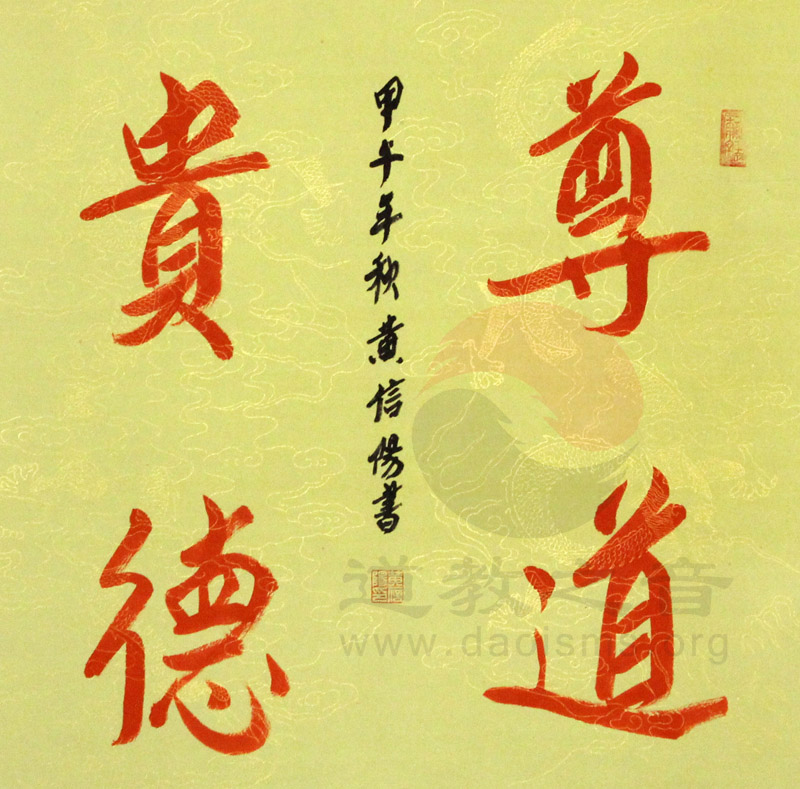 尊道
貴德
甲午年秋黄信陽書
道教之音
www.daoisms.org